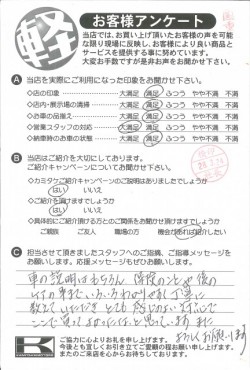 軽
お客様アンケート
当店では、お買い上げ頂いたお客様の声を可能
な限り現場に反映し、お客様により良い商品と
サービスを提供する事に努めています。
大変お手数ですが是非お声をお聞かせ下さい。
A 当店を実際にご利用になった印象をお聞かせ下さい。
◇店の印象 大満足 満足 ふつう やや不満 不満
◇店内・展示場の清掃 大満足 満足 ふつう やや不満 不満
◇お車の品揃え 大満足 満足 ふつう やや不満 不満
◇営業スタッフの対応 大満足 満足 ふつう やや不満 不満
◇納車時のお車の状態 大満足 満足 ふつう やや不満 不満
B 当店はご紹介を大切にしております。
ご紹介キャンペーンについてお聞かせ下さい。
◇カミタケご紹介キャンペーンのご説明はありましたでしょうか
はい いいえ
◇ご紹介を頂けますでしょうか
はい いいえ
◇具体的にご紹介頂ける方とのご関係をお聞かせ頂けますでしょうか
ご親族 ご友人 職場の方 機会があれば紹介したい
C 担当させて頂きましたスタッフへのご指摘、ご指導メッセージを
お願いします。応援メッセージもぜひお願いします。
車の説明はもちろん 保険のことや 後の
いろいろわかりやすく丁寧に
教えていただき とても 感じのよい対応で
ここで買ってよかったなぁと思っています。また
よろしくお願いします
K
ご協力に心よりお礼を申し上げます。
今後とも宜しくお引き立てご愛顧の程お願い申し上げます。
またのご来店を心からお待ちしております。